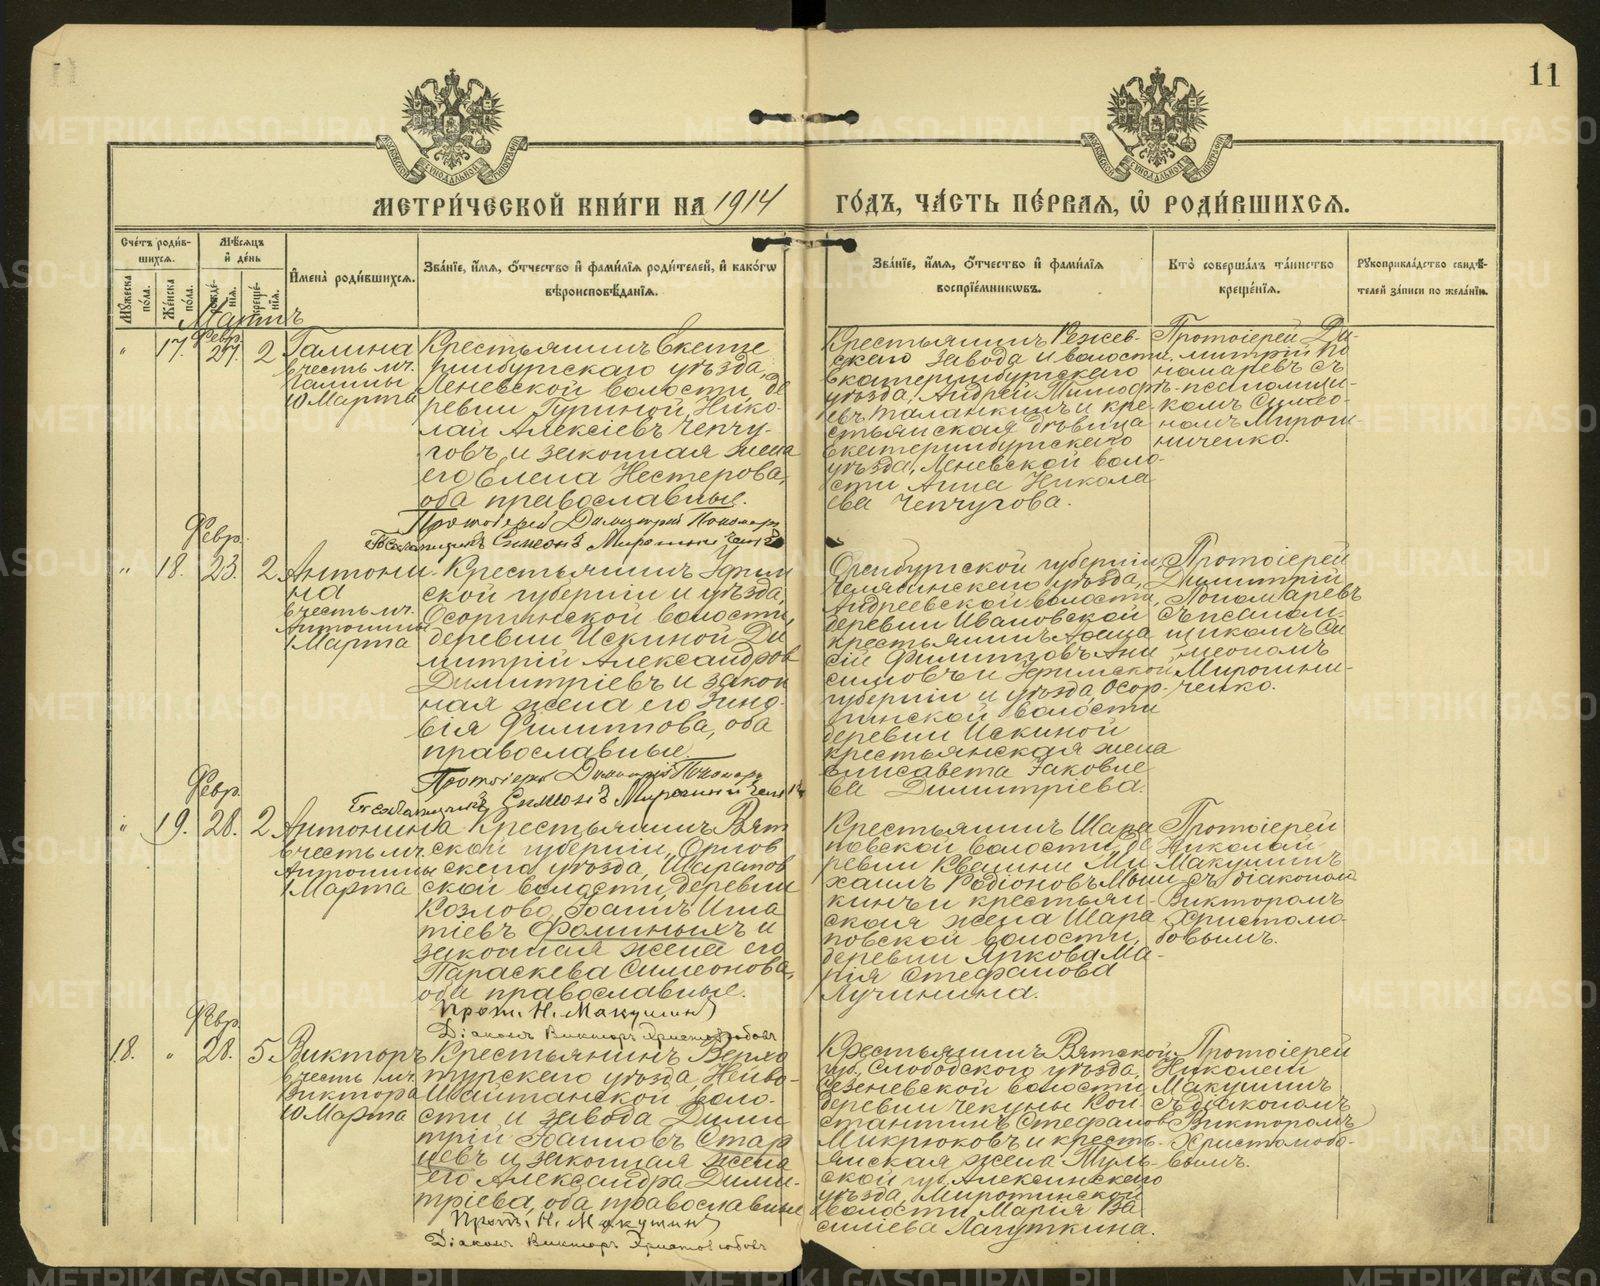 11
МЕТРИ́ЧЕСКОЙ КНИ́ГИ НА 1914 ГО́ДЪ, ЧА́СТЬ ПЕ́РВАЯ, Ѡ РОДИ́ВШИХСЯ.
Сче́тъ роди́в-
шихся.
Мѣ́сяцъ
и҆ де́нь
Му́жеска по́ла.
Же́нска по́ла.
рожде́-
нія.
креще́-
нія.
И҆мена̀ роди́вшихся.
Зва́ніе, и҆́мя, ѻ҆́тчество и҆ фами́лія роди́телей, и҆ како́гѡ
вѣроисповѣ́данія.
Зва́ніе, и҆́мя, ѻ҆́тчество и҆ фами́лія
воспріе́мникѡвъ.
Кто̀ соверша́лъ та́инство
креще́нія.
Рукоприкла́дство свидѣ́-
телей за́писи по жела́нію.
Мартъ
Февр.
" 17. 27. 2
Галина
в честь мч.
Галины
10 Марта
Крестьянинъ Екате
ринбургскаго уѣзда,
Леневской волости, де
ревни Гуриной, Нико-
лай Алексіевъ Чепчу-
говъ, и законная жена
его Елена Нестерова,
оба православные.
Протоіерей Димитрій Пономарь
Псаломщикъ Симеонъ Мирошниченко
Крестьянинъ Режев-
скаго завода и волости,
Екатеринбургскаго
уѣзда, Андрей Тимоф-
евъ Таланкинъ и кре-
стьянская дѣвица
Екатеринбургскаго
уѣзда, Леневской воло-
сти Анна Никола
ева Чепчугова.
Протоіерей Ди-
митрій По
номаревъ съ
псаломщи-
комъ Симео-
номъ Мирош-
ниченко.
Февр.
" 18. 23. 2
Антони
на
в честь мч.
Антонины
1 Марта
Крестьянинъ Уфим
ской губерніи и уѣзда,
Осоргинской волости,
деревни Искиной Ди
митрій Александров
Димитріевъ и закон
ная жена его Зино-
вія Филиппова, оба
православные.
Протоіерей Димитрій Пономарь
Псаломщикъ Симеонъ Мирошниченко
Оренбургской губерніи,
Челябинскаго уѣзда,
Андреевской волости,
деревни Ивановской
крестьянинъ
сій Филипповъ Ани
симовъ и Уфимской
губерніи и уѣзда Осор-
гинской волости
деревни Искиной
крестьянская жена
Елисавета Іаковле
ва Димитріева.
Протоіерей
Димитрій
Пономаревъ
съ псалом-
щикомъ Си
меономъ
Мирошни-
ченко.
Февр.
" 19. 28. 2
Антонина
в честь мч.
Антонины
1 Марта
Крестьянинъ Вят
ской губерніи, Орлов
скаго уѣзда, Шарапов
ской волости, деревни
Козлово, Іоаннъ Игна
тіевъ Фоминыхъ и
законная жена его
Параскева Симеонова,
оба православные.
Прот. Н. Макушинъ
Діаконъ Викторъ Христолюбовъ
Крестьянинъ Шара
повской волости, де
ревни Квешни Ми
хаилъ Родіоновъ Мыш-
кинъ и крестьян-
ская жена Шара
повской волости,
деревни Яркова Ма-
рія Стефанова
Лучинина.
Протоіерей
Николай
Макушинъ
съ діакономъ
Викторомъ
Христолю-
бовымъ.
Февр.
18. " 28. 5
Викторъ
в честь мч.
Виктора
10 Марта
Крестьянинъ Верхо
турскаго уѣзда, Нейво-
Шайтанской воло-
сти и завода Дими
трій Іоанновъ Стар
цевъ и законная жена
его Александра Дими-
тріева, оба православные
Прот. Н. Макушинъ
Діаконъ Викторъ Христолюбовъ
Крестьянинъ Вятской
губ. Слободского уѣзда,
Сезеневской волости
деревни Чекуны Кон
стантинъ Стефанов
Микрюковъ и кресть-
янская жена Туль-
ской губ. Алексинскаго
уѣзда, Миротинской
волости Марія Ва
силіева Лагуткина.
Протоіерей
Николай
Макушинъ
съ діакономъ
Викторомъ
Христолюбо-
вымъ.
METRIKI.GASO-URAL.RU